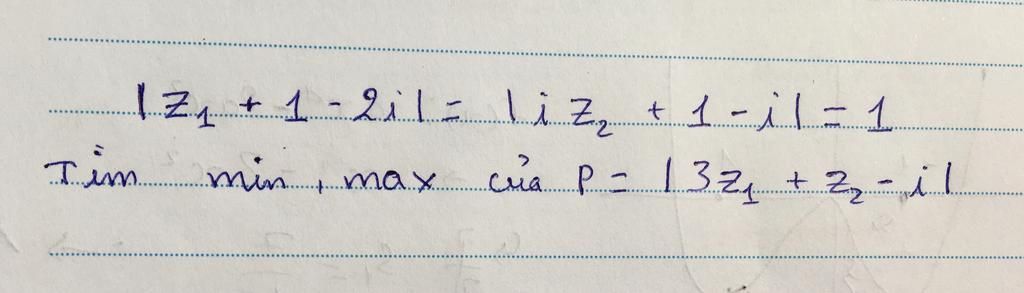 |z₁ + 1 - 2i| = |i z₂ + 1 - i| = 1
Tìm min, max của P = |3z₁ + z₂ - i|